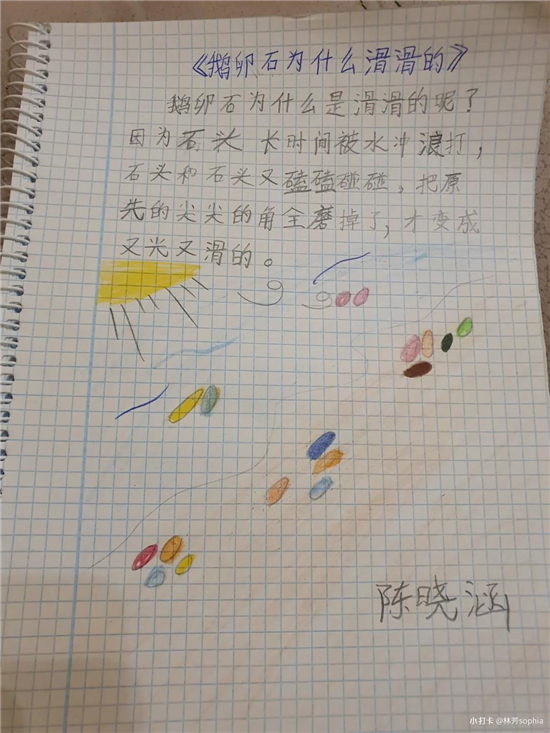 《鹅卵石为什么滑滑的》
鹅卵石为什么是滑滑的呢？
因为石头长时间被水冲浪打，
石头和石头又磕磕碰碰，把原
先的尖尖的角全磨掉了，才变成
又光又滑的。
陈晓涵
小打卡 @林芳sophia